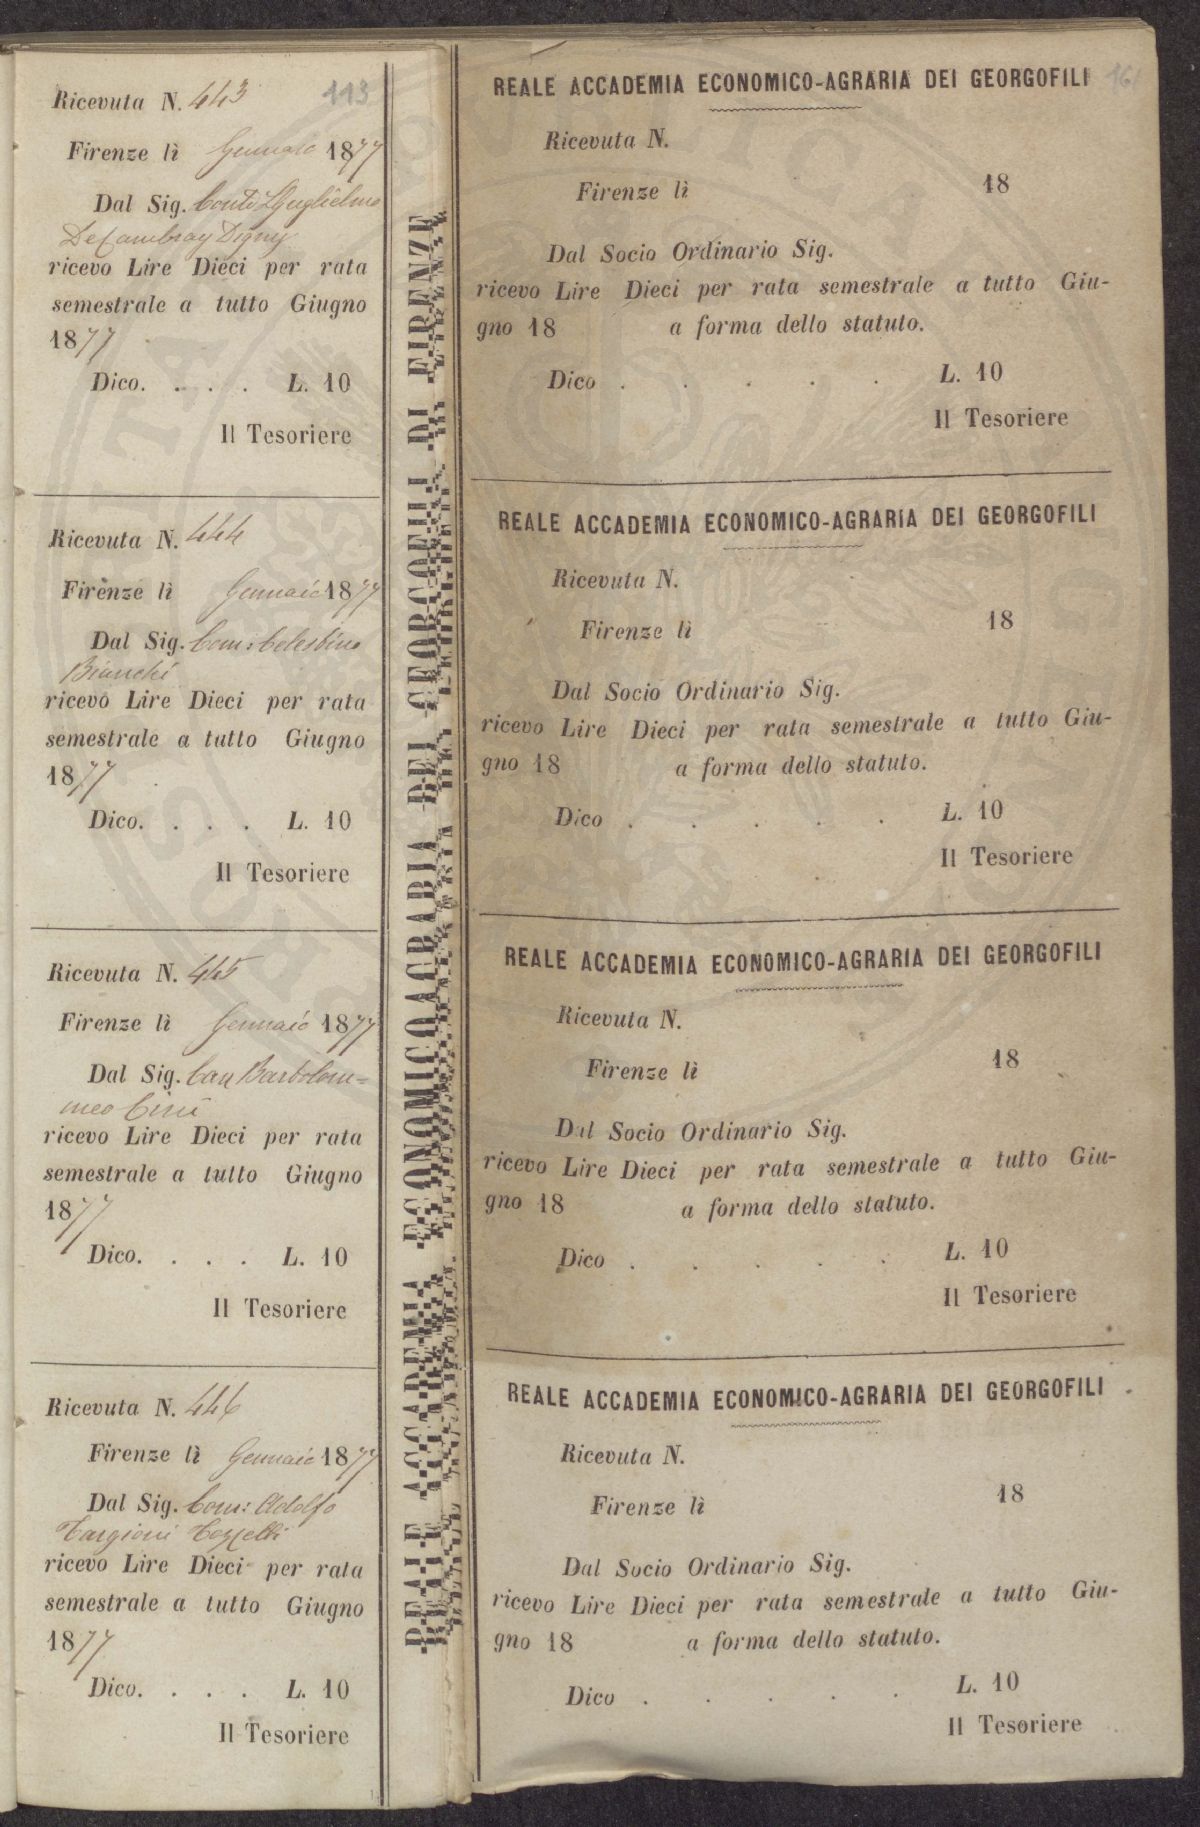 Ricevuta N. 443
113
Firenze lì Gennaio 1877
Dal Sig. Conte Guglielmo
De Cambray Digny
ricevo Lire Dieci per rata
semestrale a tutto Giugno
1877
Dico. . . . L. 10
Il Tesoriere
Ricevuta N. 444
Firenze lì Gennaio 1877
Dal Sig. Com: Celestino
Bianchi
ricevo Lire Dieci per rata
semestrale a tutto Giugno
1877
Dico. . . . L. 10
Il Tesoriere
Ricevuta N. 445
Firenze lì Gennaio 1877
Dal Sig. Cav Bartolom=
meo Cini
ricevo Lire Dieci per rata
semestrale a tutto Giugno
1877
Dico. . . . L. 10
Il Tesoriere
Ricevuta N. 446
Firenze lì Gennaio 1877
Dal Sig. Com: Adolfo
Targioni Tozzetti
ricevo Lire Dieci per rata
semestrale a tutto Giugno
1877
Dico. . . . L. 10
Il Tesoriere
REALE ACCADEMIA ECONOMICOAGRARIA DEI GEORGOFILI DI FIRENZE
REALE ACCADEMIA ECONOMICO-AGRARIA DEI GEORGOFILI
Ricevuta N.
Firenze lì 18
Dal Socio Ordinario Sig.
ricevo Lire Dieci per rata semestrale a tutto Giu-
gno 18 a forma dello statuto.
Dico . . . . . L. 10
Il Tesoriere
REALE ACCADEMIA ECONOMICO-AGRARIA DEI GEORGOFILI
Ricevuta N.
Firenze lì 18
Dal Socio Ordinario Sig.
ricevo Lire Dieci per rata semestrale a tutto Giu-
gno 18 a forma dello statuto.
Dico . . . . . L. 10
Il Tesoriere
REALE ACCADEMIA ECONOMICO-AGRARIA DEI GEORGOFILI
Ricevuta N.
Firenze lì 18
Dal Socio Ordinario Sig.
ricevo Lire Dieci per rata semestrale a tutto Giu-
gno 18 a forma dello statuto.
Dico . . . . . L. 10
Il Tesoriere
REALE ACCADEMIA ECONOMICO-AGRARIA DEI GEORGOFILI
Ricevuta N.
Firenze lì 18
Dal Socio Ordinario Sig.
ricevo Lire Dieci per rata semestrale a tutto Giu-
gno 18 a forma dello statuto.
Dico . . . . . L. 10
Il Tesoriere